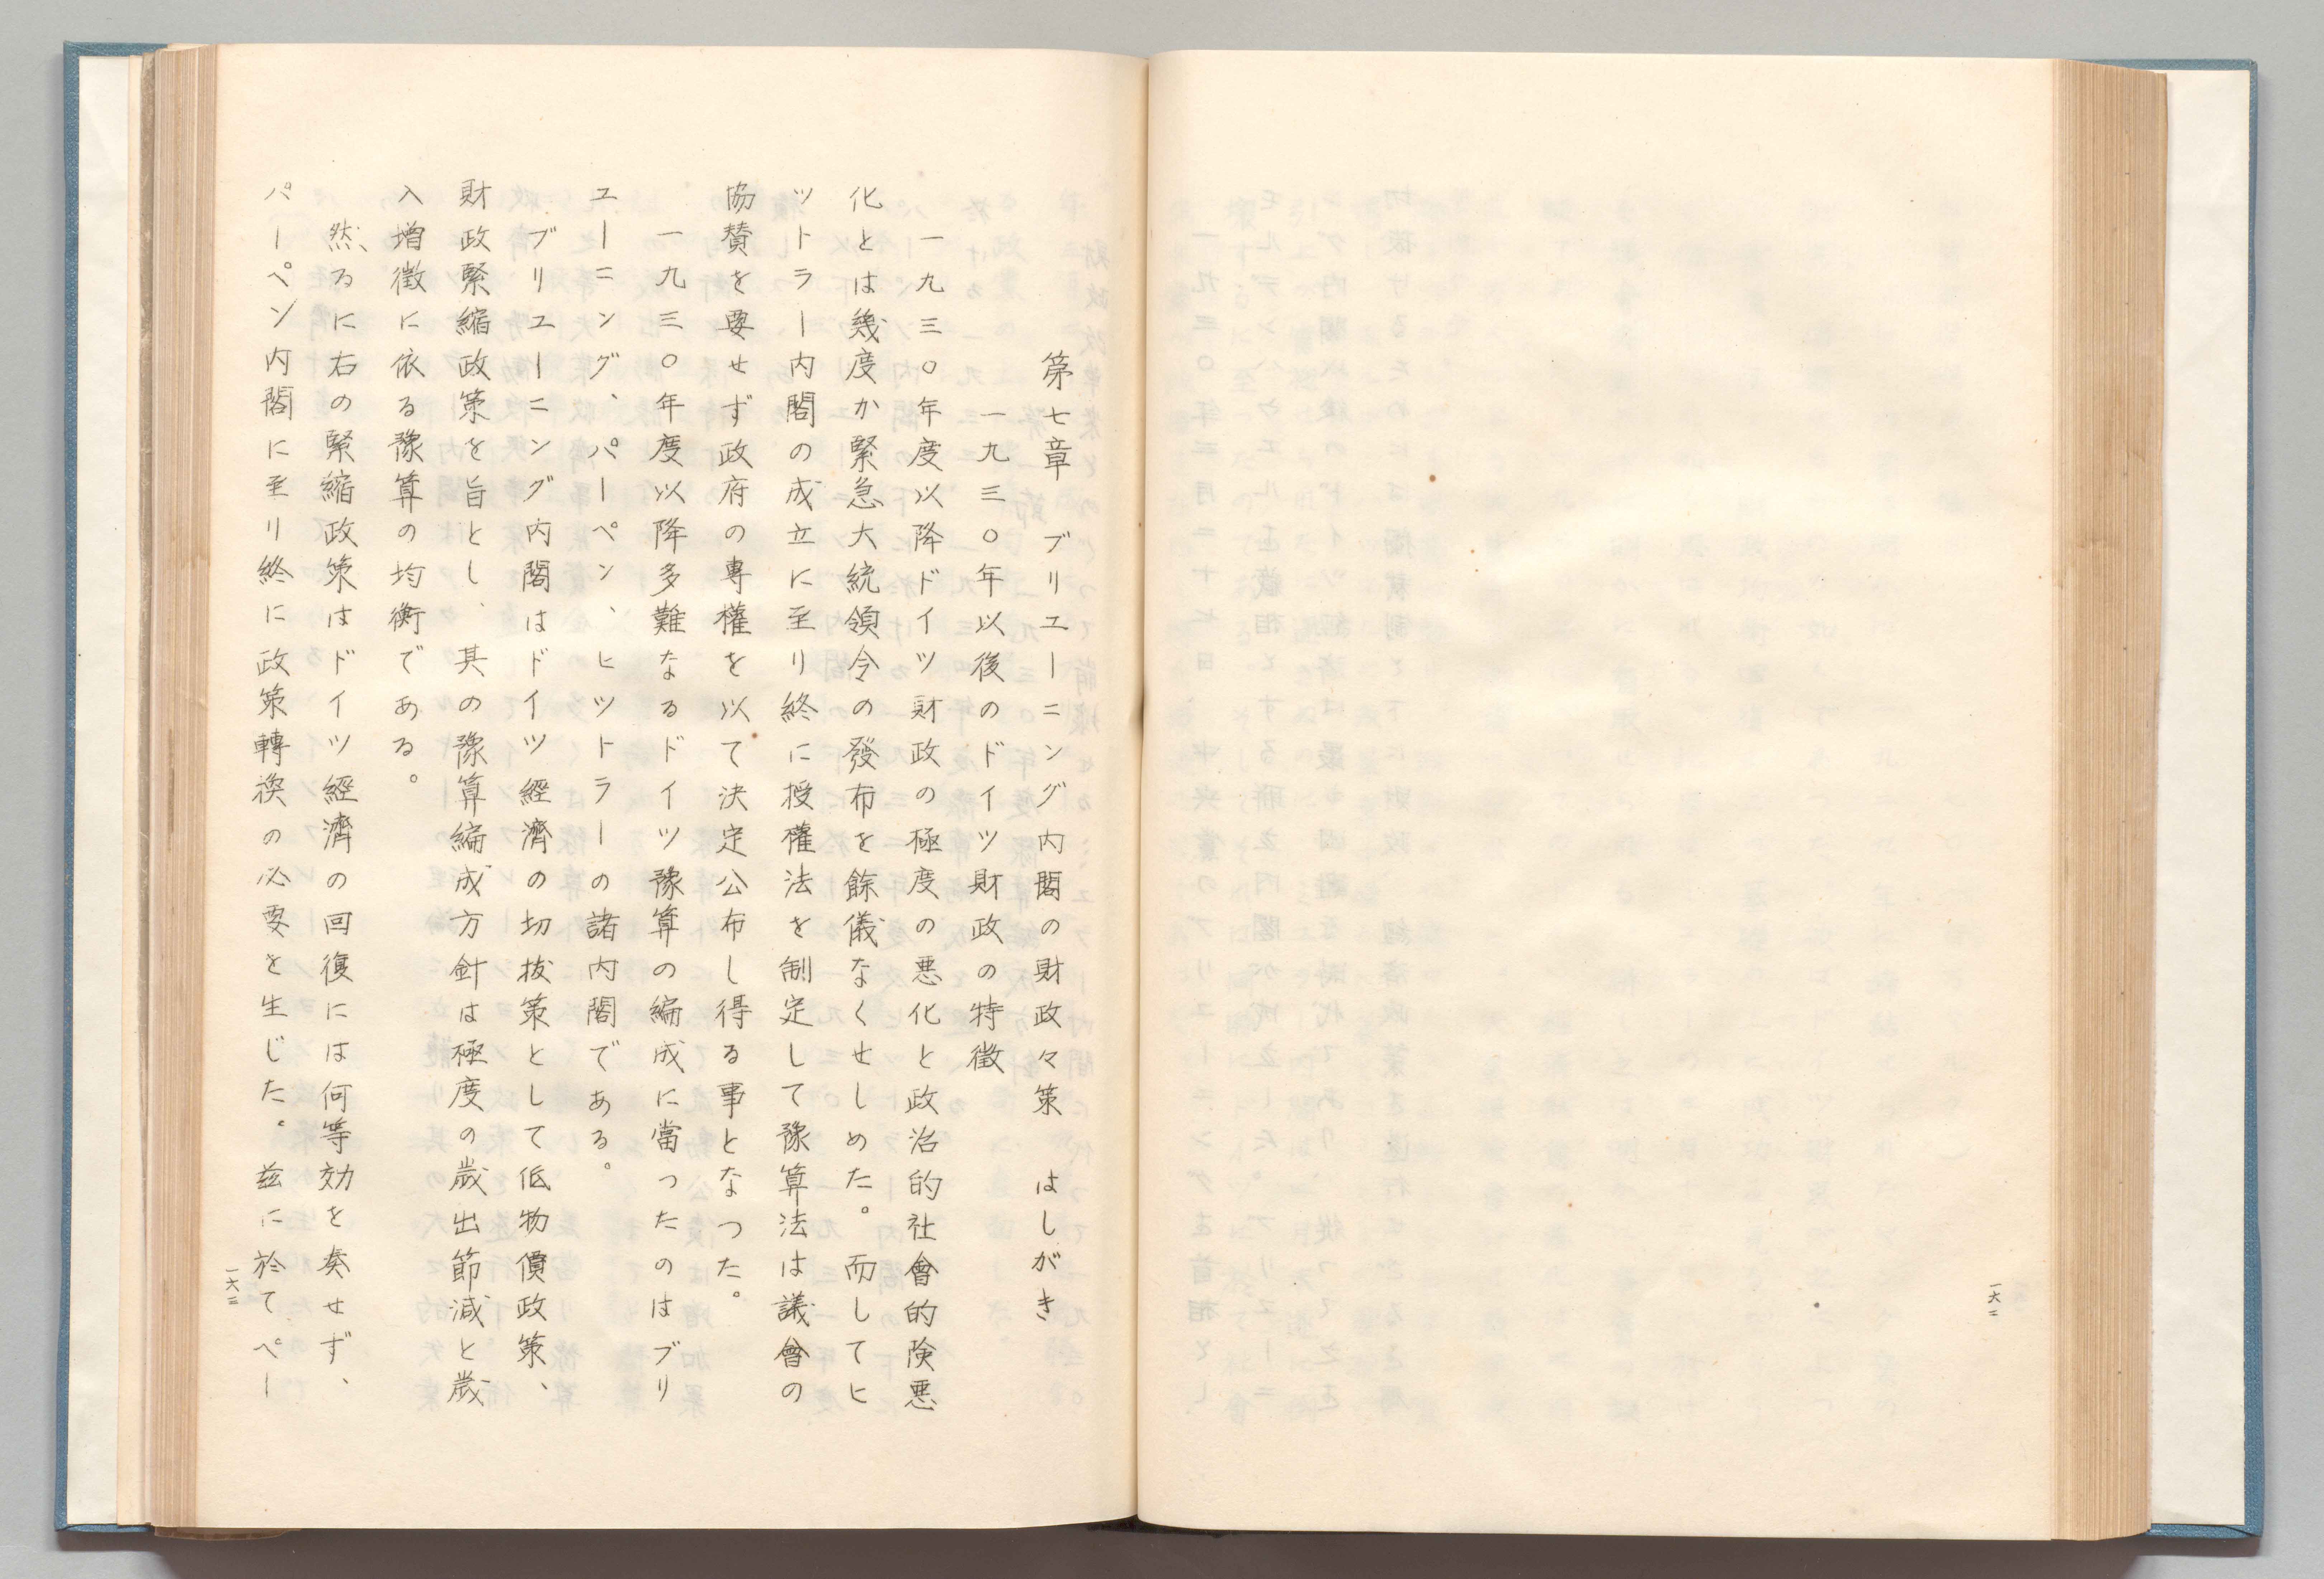 一六二
第七章　ブリユーニング内閣の財政々策　はしがき
一九三〇年以後のドイツ財政の特徴
一九三〇年度以降ドイツ財政の極度の悪化と政治的社會的険悪
化とは幾度か緊急大統領令の發布を餘儀なくせしめた。而してヒ
ツトラー内閣の成立に至り終に授權法を制定して豫算法は議會の
協賛を要せず政府の專權を以て決定公布し得る事となつた。
一九三〇年度以降多難なるドイツ豫算の編成に當つたのはブリ
ユーニング、パーペン、ヒツトラーの諸内閣である。
ブリユーニング内閣はドイツ經濟の切抜策として低物價政策、
財政緊縮政策を旨とし、其の豫算編成方針は極度の歳出節減と歳
入増徴に依る豫算の均衡である。
然るに右の緊縮政策はドイツ經濟の回復には何等効を奏せず、
パーペン内閣に至り終に政策轉換の必要を生じた。茲に於てペー
一六三